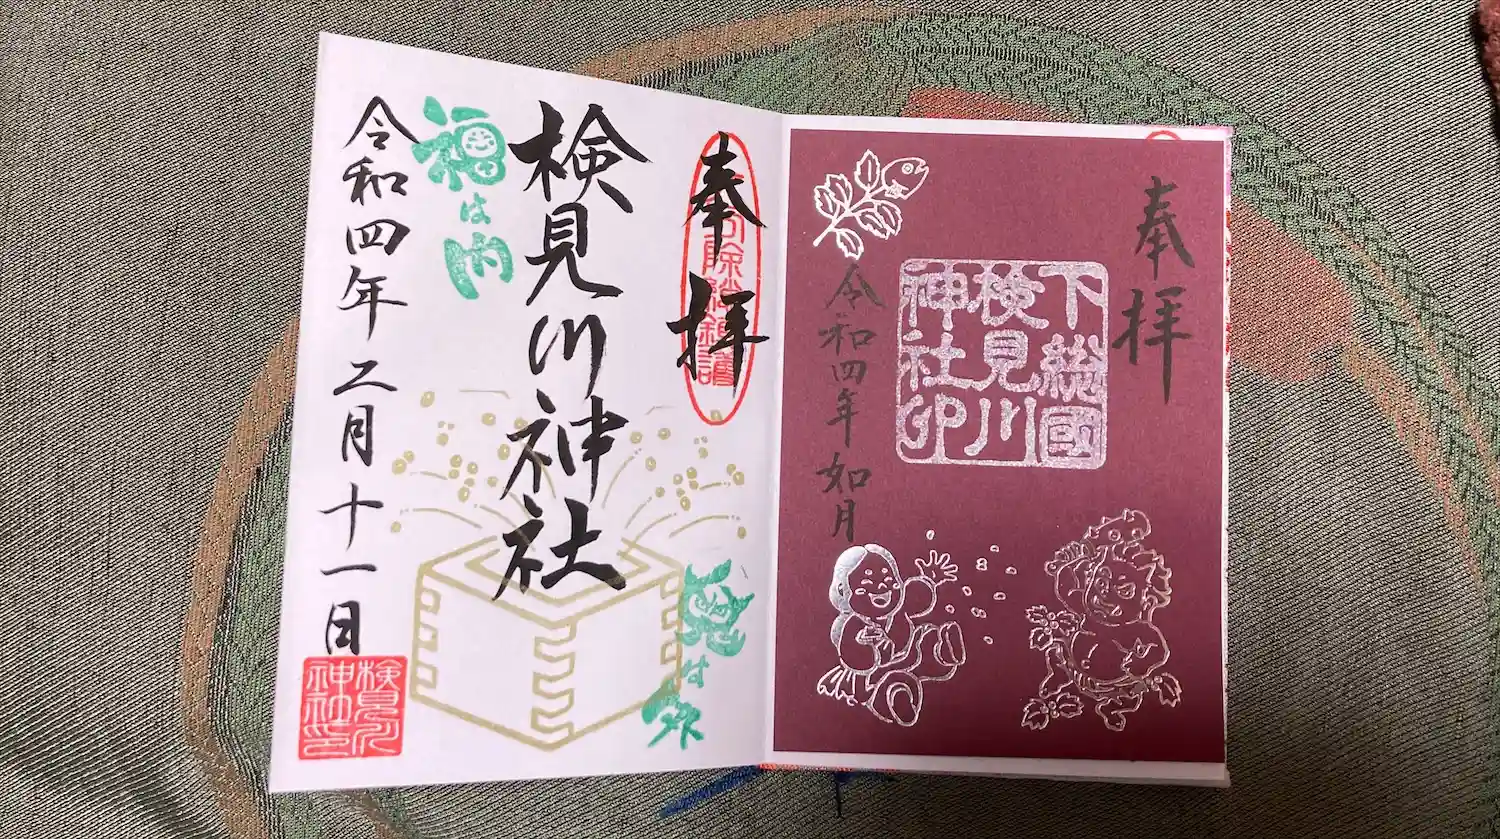 奉拝
下総國
検見川
神社印
令和四年如月
奉拝
検見川神社
福は内
鬼は外
令和四年二月十一日
検見川
神社印